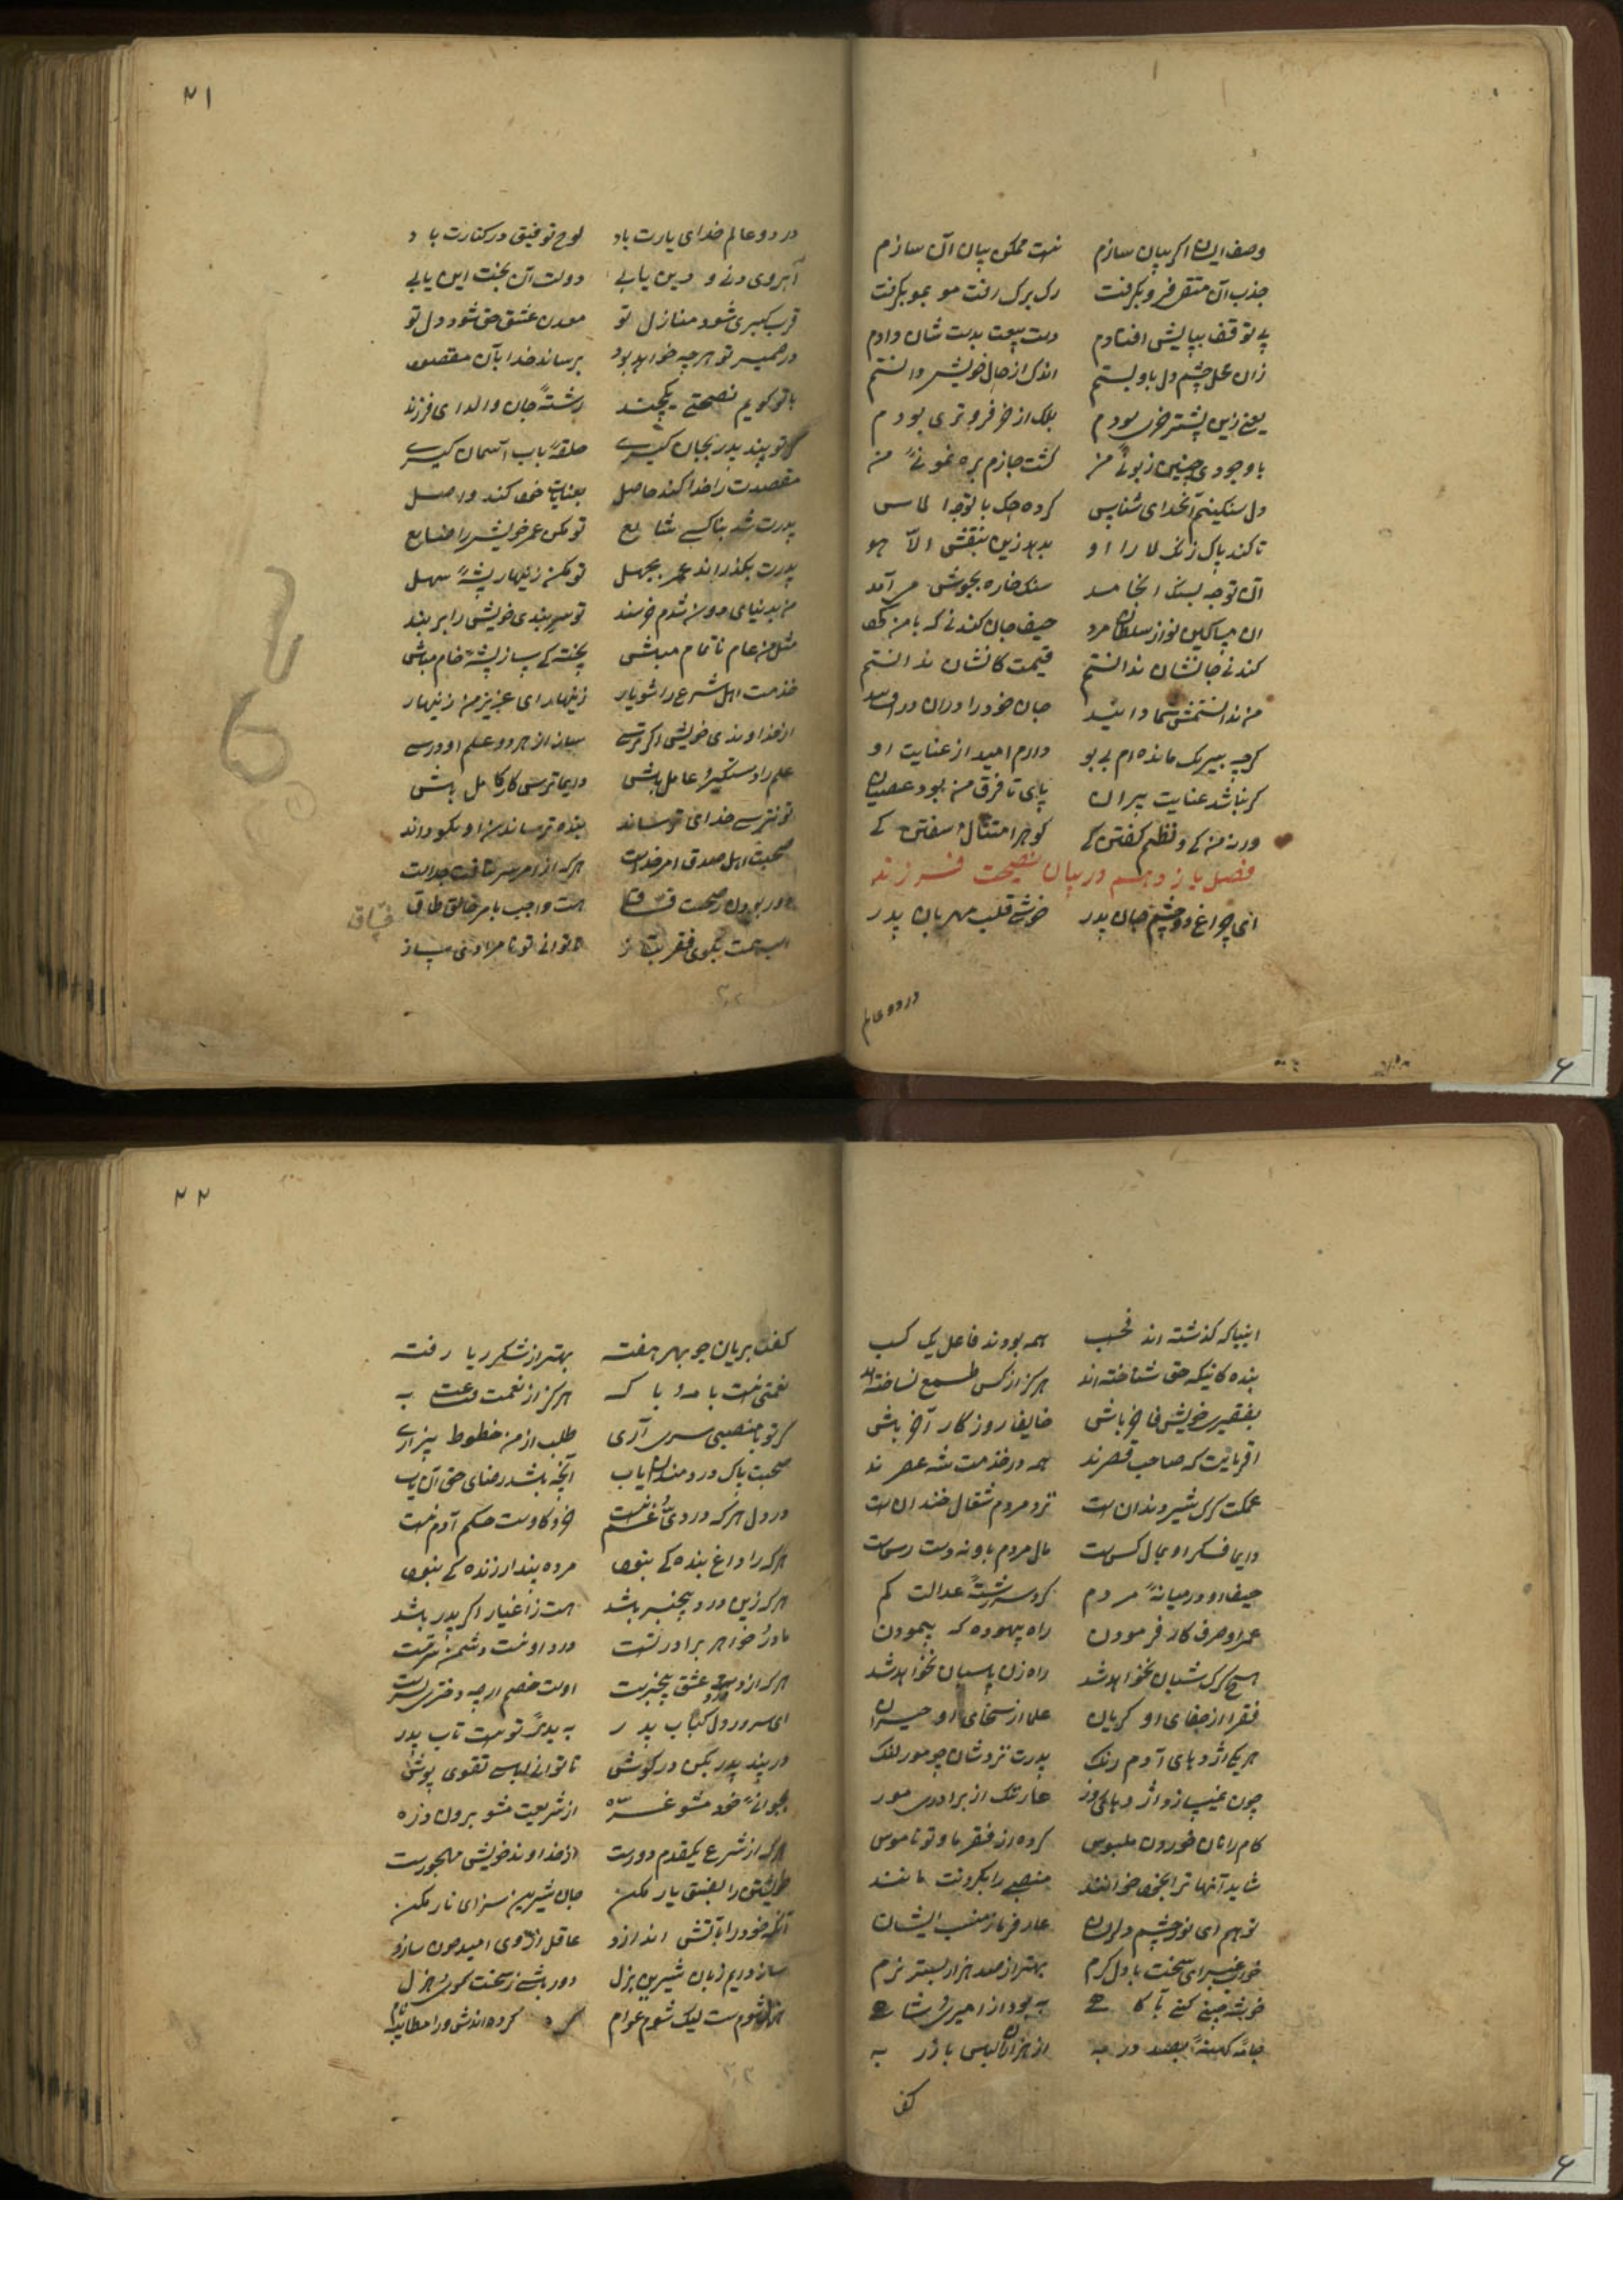 وصف ایشان اگر بیان سازم نیست ممکن بیان آن سازم
جذب آن متقی فرو بگرفت رک برک رفت مو بمو بگرفت
بی توقف بپایش افتادم دست بیعت بدست شان دادم
زان عمل چشم دل باو بستم اندک از حال خویش دانستم
یعنی زین پیشتر خری بودم بلک از خر فروتری بودم
با وجودی چنین زبونئ من گشت جازم بره نمونئ من
دل سنگینم آنخدای شناس کرده حک با توجه الماس
تا کند پاک زنگ لا را او بدهد زین بنقش الا هو
آن توجه بسنگ انجامد سنگ خاره بجوش می آمد
آن مساکین نواز سلطان مرد حیف جان کندنی که با من کرد
کندنی جانشان ندانستم قیمت کانشان ندانستم
من ندانستمش شما دانید جان خود را دران در افشانید
گرچه بیرنگ مانده ام بی بو دارم امید از عنایت او
گر نباشد عنایت پیران پای تا فرق من بود عصیان
ورنه من کی و نظم گفتن کی گوهر امتثال سفتن کی
فصل یازدهم در بیان نصیحت فرزند
ای چراغ دو چشم جان پدر خوشی قلب مهربان پدر
در دو عالم
۲۱
در دو عالم خدای یارت باد لوح توفیق در کنارت باد
آبروی دنی و دین یابی دولت آن بخت این یابی
قرب کبیری شود منازل تو معدن عشق حق شود دل تو
در ضمیر تو هرچه خواهد بود برساند خدا بآن مقصود
با تو گویم نصیحتی یکچند رشتهٔ جان والد ای فرزند
گر تو پند پدر بجان گیری حلقهٔ باب آسمان گیری
مقصدت را خدا کند حاصل بعنایات خود کند واصل
پدرت شد بناکسی شایع تو مکن عمر خویش را ضایع
پدرت بگذراند عمر بجهل تو مکن زینهار پیشهٔ سهل
من بدنیای دون شدم خرسند تو سربندی خویش را بر بند
مثل من عام ناتمام مباش پخته کی ساز پیشه خام مباش
خدمت اهل شرع را شو یار زینهار ای عزیز من زینهار
از خداوندی خویش اگر ترسی ستان از هر دو علم او درسی
علم را دستگیر و عامل باش دایما ترسی کار کامل باش
تو نترسی خدای ترساند بنده ترساندن او نکو داند
صحبت اهل صدق امر خداست هرکه از امر سر بتافت جداست
دور بودن ز صحبت فساق هست واجب بامر خالق طاق
فسّاق
تا توانی تو نامرادی ساز
۳۰۲
انبیا که گذشته اند نحسب همه بودند فاعل یک کسب
بنده گانیکه حق شناخته اند هرگز از کس طمع نساخته اند
بفقیری خویش فاخر باش خایف روزگار آخر باش
اقربایت که صاحب قصرند همه در خدمت شه عصرند
عمکت گرگ شیر دندان است نزد مردم شغال خندان است
دایما فکر او بمال کس است مال مردم باو نه دست رس است
حیف او در میانهٔ مردم کرد سررشتهٔ عدالت گم
عمر او صرف کار فرمودن راه بیهوده که پیمودن
هیچ گرگ شبان نخواهد شد راه زن پاسبان نخواهد شد
فقرا از جفای او گریان علما از سخای او حیران
هر یکی اژدهای آدم رنگ پدرت نزد شان چو مور لنگ
عار تنگ از برادری مور
کام را نان خوردن ملبوس کرده از فقر ما و تو ناموس
شاید آنها ترا بخود خوانند منصبی را بگردنت مانند
تو هم ای نور چشم دلریش عار فرما ز منصب ایشان
خواب غبرای سخت با دل گرم بهتر از صد هزار بستر نرم
خوشه چینی کنی به بود از امیری شاهی
جامه کهنهٔ بصد درز به از هزاران لباس با زر به
کف
۲۲
کف بریان جو بهر هفته بهتر از شکر ربا رفته
هرگز از نعمت دعت به
گر تو با منصبی سری آری طلب از من خطوط بیزاری
صحبت پاک دردمندان یاب آنچه باشد رضای حق آن یاب
در دل هرکه درد و غم نیست خر و گاوست حکم آدم نیست
هرکه را داغ بنده کی نبود مرده پندار زنده کی نبود
هرکه زین درد بیخبر باشد هست ز اغیار اگر پدر باشد
مادر و خواهر و برادر تست درد او نیست دشمن سر تست
هرکه از درد عشق بیخبرست اوست خصم ارچه دختر و پسرست
ای سرور دل کباب پدر به پدر تو هست تاب پدر
در پند پدر بکن در گوش تا توانی لباس تقوی پوش
بجوانئ خود مشو غرّه از شریعت مشو برون ذره
هرکه از شرع یکقدم دورست از خداوند خویش مهجورست
خویشتن را بفسق یار مکن جان شیرین سزای نار مکن
آنکه خود را بآتش اندازد عاقل از وی امید چون سازد
ساز دایم زبان شیرین بزل دور باش ز سخت گوی و هزل
هزل شوم ست لیک شوم عوام کرده اندش ورا مطایبه نام
۳۰۲